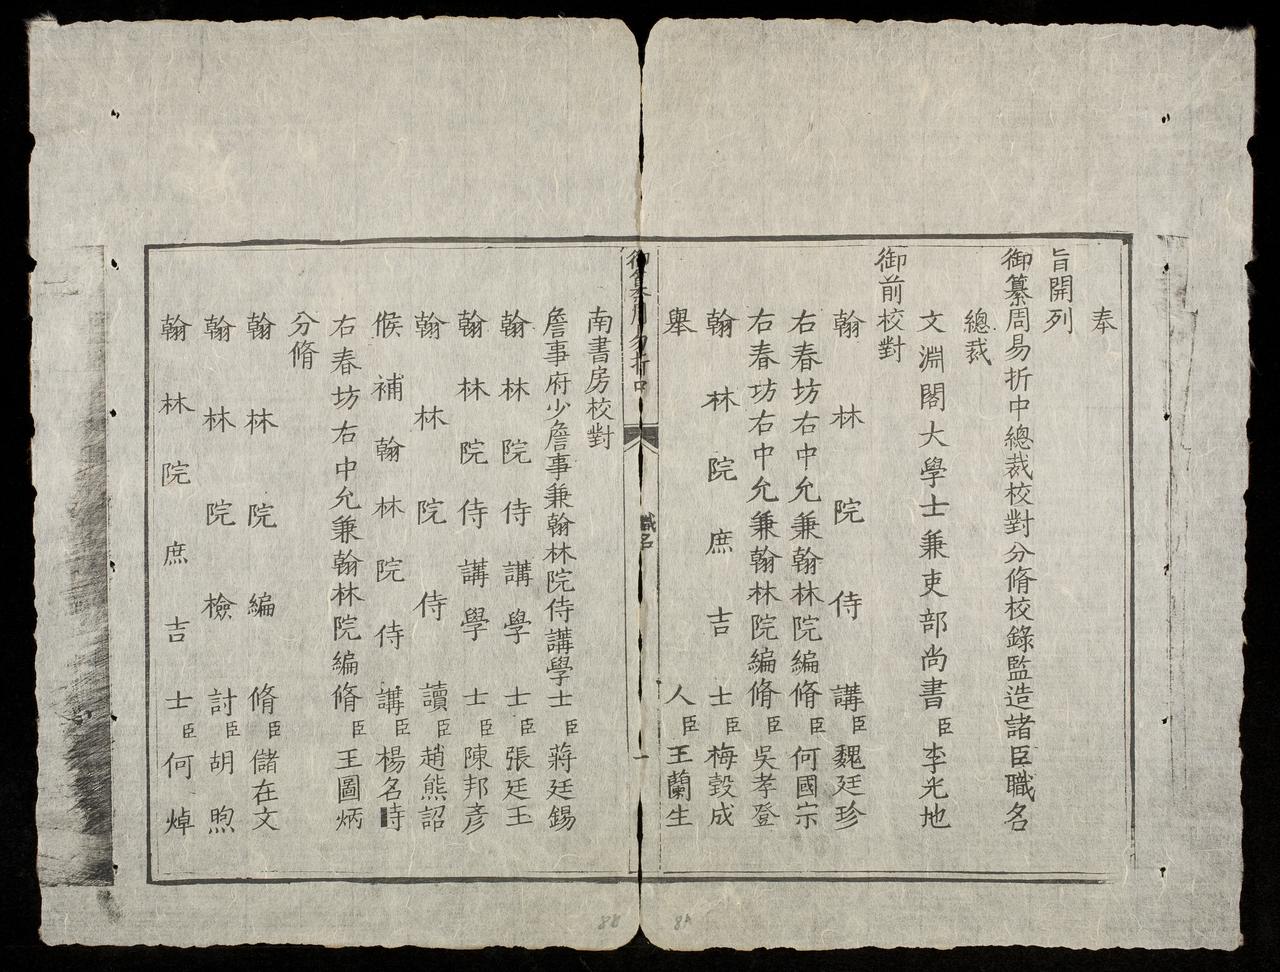 奉
旨開列
御纂周易折中總裁校對分脩校錄監造諸臣職名
總裁
文淵閣大學士兼吏部尚書臣李光地
御前校對
翰林院侍講臣魏廷珍
右春坊右中允兼翰林院編脩臣何國宗
右春坊右中允兼翰林院編脩臣吳孝登
翰林院庶吉士臣梅瑴成
舉人臣王蘭生
御纂周易折中
職名
一
南書房校對
詹事府少詹事兼翰林院侍講學士臣蔣廷錫
翰林院侍講學士臣張廷玉
翰林院侍講學士臣陳邦彥
翰林院侍讀臣趙熊詔
候補翰林院侍講臣楊名時
右春坊右中允兼翰林院編脩臣王圖炳
分脩
翰林院編脩臣儲在文
翰林院檢討臣胡煦
翰林院庶吉士臣何焯